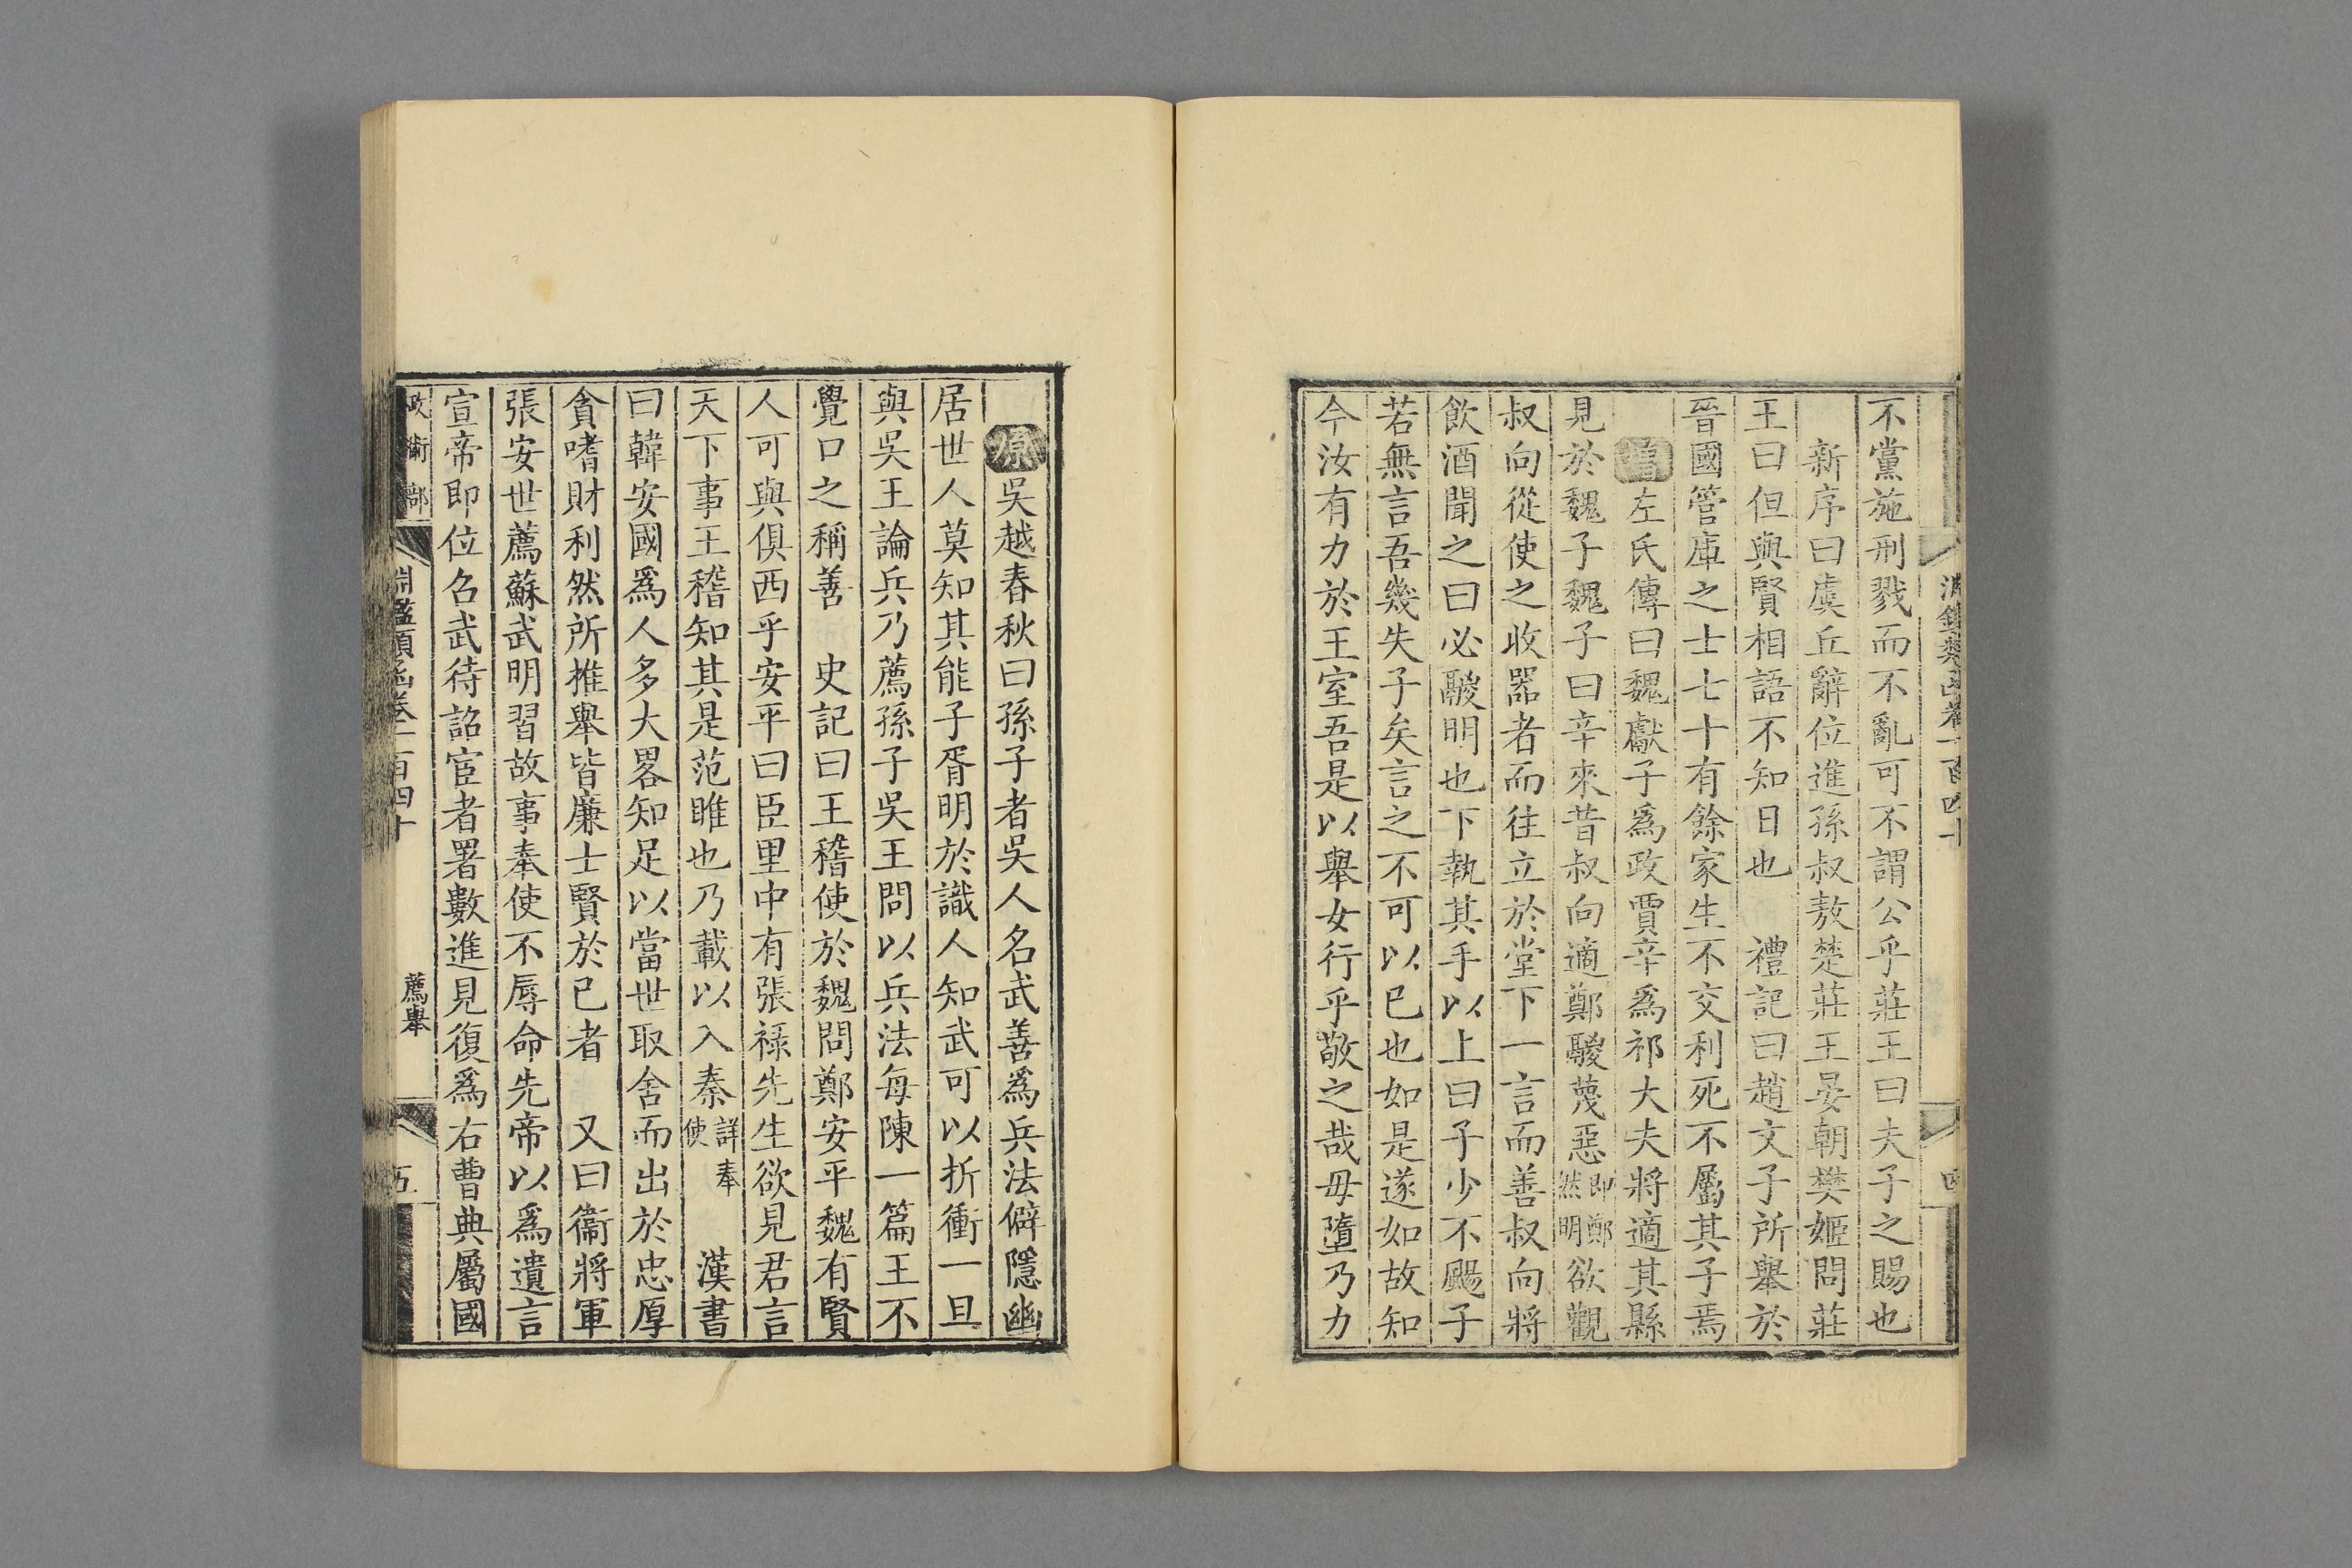 淵鑑類函卷一百四十
四
不黨施刑戮而不亂可不謂公乎莊王曰夫子之賜也
新序曰虞丘辭位進孫叔敖楚莊王晏朝樊姬問莊
王曰但與賢相語不知日也　禮記曰趙文子所舉於
晉國管庫之士七十有餘家生不交利死不屬其子焉
增左氏傳曰魏獻子爲政賈辛爲祁大夫將適其縣
見於魏子魏子曰辛來昔叔向適鄭鬷蔑惡即鄭然明欲觀
叔向從使之收器者而往立於堂下一言而善叔向將
飲酒聞之曰必鬷明也下執其手以上曰子少不颺子
若無言吾幾失子矣言之不可以已也如是遂如故知
今汝有力於王室吾是以舉女行乎敬之哉毋墮乃力
原吳越春秋曰孫子者吳人名武善爲兵法僻隱幽
居世人莫知其能子胥明於識人知武可以折衝一旦
與吳王論兵乃薦孫子吳王問以兵法每陳一篇王不
覺口之稱善　史記曰王稽使於魏問鄭安平魏有賢
人可與俱西乎安平曰臣里中有張祿先生欲見君言
天下事王稽知其是范睢也乃載以入秦詳奉使　漢書
曰韓安國爲人多大畧知足以當世取舍而出於忠厚
貪嗜財利然所推舉皆廉士賢於已者　又曰衞將軍
張安世薦蘇武明習故事奉使不辱命先帝以爲遺言
宣帝即位名武待詔宦者署數進見復爲右曹典屬國
政術部
淵鑑類函卷一百四十
薦舉
五